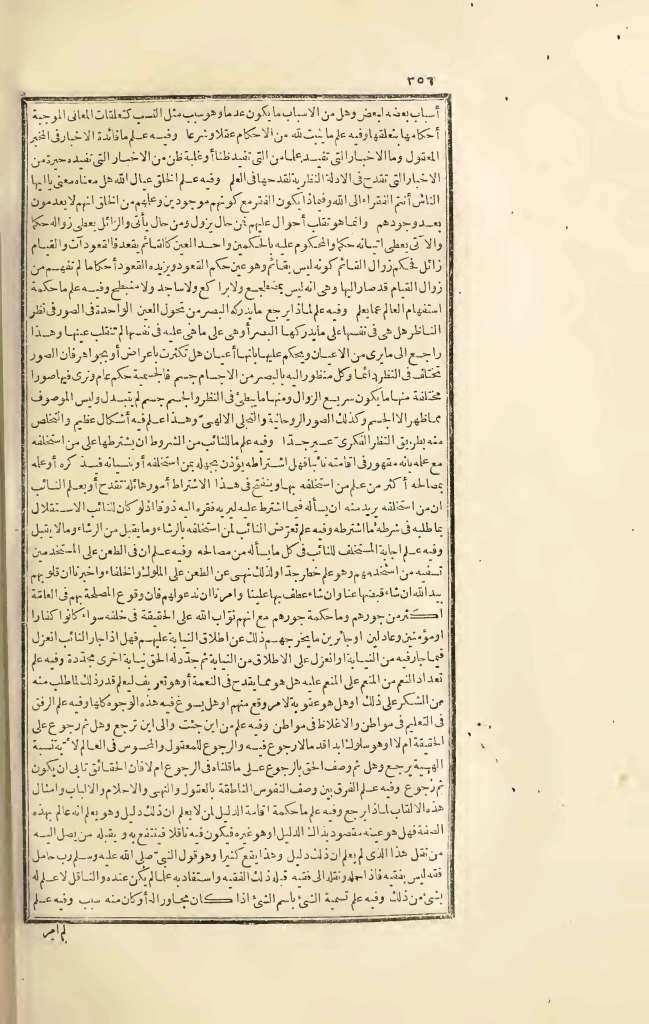 ٣٥٦
أسباب بعضه لبعض وهل من الاسباب ما يكون عدما وهو سبب مثل النسب كتعلقات المعانى الموجبة
أحكامها بتعلقها وفيه علم ما يثبت لله من الاحكام عقلا وشرعا وفيه علم ما فائدة الاخبار فى المخبر
المعقول وما الاخبار التى تفيد علما من التى تفيد ظنا أو غلبة ظن من الاخبار التى تفيد حيرة من
الاخبار التى تقدح فى الادلة النظرية لقدحها فى العلم وفيه علم الخلق عيال الله هل معناه معنى يا ايها
الناس أنتم الفقراء الى الله وفيماذا يكون الفقر مع كونهم موجودين وعلمهم من الخلق انهم لا يعدمون
بعد وجودهم وانما هو تقلب أحوال عليهم فمن حال يزول ومن حال يأتى والزائل يعطى زواله حكما
والآتى يعطى اتيانه حكما والمحكوم عليه بالحكمين واحد العين كالقائم يقعد فالقعود آت والقيام
زائل فحكم زوال القائم كونه ليس بقائم وهو عين حكم القعود ويزيده القعود أحكاما لم تفهم من
زوال القيام قد صار اليها وهى انه ليس بمضطجع ولا براكع ولا ساجد ولا منبطح وفيه علم ما حكمة
استفهام العالم عما يعلم وفيه علم لماذا يرجع ما يدركه البصر من تحول العين الواحدة فى الصور فى نظر
الناظر هل هى فى نفسها على ما يدركها البصر أو هى على ما هى عليه فى نفسها لم تنقلب عينها وهذا
راجع الى ما يرى من الاعيان ويحكم عليها بانها أعيان هل تكثرت باعراض أو بجواهر فان الصور
تختلف فى النظر دائما وكل منظور اليه بالبصر من الاجسام جسم فالجسمية حكم عام ونرى فيها صورا
مختلفة منها ما يكون سريع الزوال ومنها ما يبطئ فى النظر والجسم جسم لم يتبدل وليس الموصوف
بما ظهر الا الجسم وكذلك الصور الروحانية والتجلى الالهىّ وهذا علم فيه أشكال عظيم والتخلص
منه بطريق النظر الفكرىّ عسير جدّا وفيه علم ما للنائب من الشروط ان يشترطها على من استخلفه
مع علمه بانه مقهور فى اقامته نائبا فهل اشتراطه يؤذن بجهله بمن استخلفه أو بنسيانه فيذكره أو علمه
بمصالحه أكثر من علم من استخلفه بها وينفتح فى هذا الاشتراط أمور هائلة تقدح أو يعلم النائب
ان من استخلفه يريد منه ان يسأله فيما اشترط عليه ليريه فقره اليه ذوقا اذ لو كان للنائب الاستقلال
بما طلبه فى شرطه ما اشترطه وفيه علم تعرّض النائب لمن استخلفه بالرشاء وما يقبل من الرشاء وما لا يقبل
وفيه علم اجابة المستخلف للنائب فى كل ما يسأله من مصالحه وفيه علم ان فى الطعن على المستخدمين
تسفيه من استخدمهم وهو علم خطر جدّا ولذلك نهى عن الطعن على الملوك والخلفاء واخبرنا ان قلوبهم
بيد الله ان شاء قبضها عنا وان شاء عطف بها علينا وامرنا ان ندعو لهم فان وقوع المصلحة بهم فى العامّة
اكثر من جورهم وما حكمة جورهم مع انهم نوّاب الله على الحقيقة فى خلقه سواء كانوا كفارا
أو مؤمنين وعادلين أو جائرين ما يخرجهم ذلك عن اطلاق النيابة عليهم فهل اذا جار النائب انعزل
فيما جار فيه من النيابة أو انعزل على الاطلاق من النيابة ثم جدّد له الحق نيابة اخرى مجدّدة وفيه علم
تعداد النعم من المنعم على المنعم عليه هل هو مما يقدح فى النعمة أو هو تعريف ليعلم قدر ذلك لما طلب منه
من الشكر على ذلك او هل هو عقوبة لامر وقع منهم او هل يسوغ فيه هذه الوجوه كلها وفيه علم الرفق
فى التعليم فى مواطن والاغلاظ فى مواطن وفيه علم من اين جئت والى اين ترجع وهل ثم رجوع على
الحقيقة ام لا او هو سلوك ابدا قدما لا رجوع فيه والرجوع للمعقول والمحسوس فى العالم لاية نسبة
الهية يرجع وهل ثم وصف الحق بالرجوع على ما قلناه فى الرجوع ام لا فان الحقائق تابى ان يكون
ثم رجوع وفيه علم الفرق بين وصف النفوس الناطقة بالعقول والنهى والاحلام والالباب وامثال
هذه الالقاب لماذا يرجع وفيه علم ما حكمة اقامة الدليل لمن لا يعلم ان ذلك دليل وهو يعلم انه عالم بهذه
الصفة فهل هو عينه مقصود بذلك الدليل او هو غيره فيكون فيه ناقلا فينتفع به ويقبله من يصل اليه
من نقل هذا الذى لم يعلم ان ذلك دليل وهذا يقع كثيرا وهو قول النبىّ صلى الله عليه وسلم رب حامل
فقه ليس بفقيه فاذا حمله ونقله الى فقيه قبله ذلك الفقيه واستفاد به علما لم يكن عنده والناقل لا علم له
بشئ من ذلك وفيه علم تسمية الشئ باسم الشئ اذا كان مجاورا له أو كان منه سبب وفيه علم